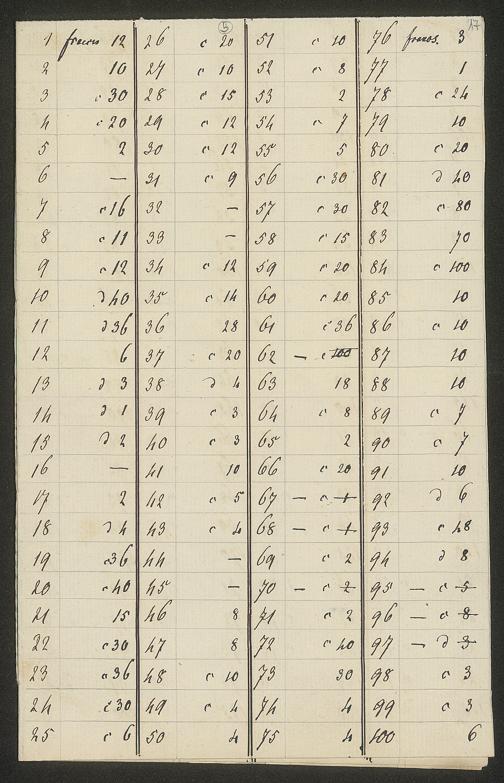 5 17
1 francs 12 26 c 20 51 c 10 76 francs. 3
2 10 27 c 10 52 c 8 77 1
3 c 30 28 c 15 53 2 78 c 24
4 c 20 29 c 12 54 c 7 79 10
5 2 30 c 12 55 5 80 c 20
6 — 31 c 9 56 c 30 81 d 40
7 c 16 32 — 57 c 30 82 c 80
8 c 11 33 — 58 c 15 83 70
9 c 12 34 c 12 59 c 20 84 c 100
10 d 40 35 c 14 60 c 20 85 10
11 d 36 36 28 61 c 36 86 c 10
12 6 37 c 20 62 — c 100 87 10
13 d 3 38 d 4 63 18 88 10
14 d 1 39 c 3 64 c 8 89 c 7
15 d 2 40 c 3 65 2 90 c 7
16 — 41 10 66 c 20 91 10
17 2 42 c 5 67 — c 1 92 d 6
18 d 4 43 c 4 68 — c 1 93 c 48
19 c 36 44 — 69 c 2 94 d 8
20 c 40 45 — 70 — c 2 95 — c 5
21 15 46 8 71 c 2 96 — c 8
22 c 30 47 8 72 c 40 97 — d 3
23 c 36 48 c 10 73 30 98 c 3
24 c 30 49 c 4 74 4 99 c 3
25 c 6 50 4 75 4 100 6